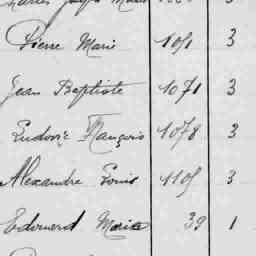 Pierre Marie 1051 3
Jean Baptiste 1071 3
Ludovic François 1078 3
Alexandre Louis 1105 3
Edouard Marie 39 1